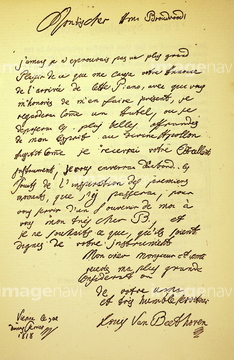 Mon très cher Ami Broadwood!
jamais je n'eprouvrais pas un plus grand
Plaisir de ce que me causa votre Annonce
de l'arrivée de cette Piano, avec que vous
m'honorès de m'en faire présent, je
regarderai come un Autel, ou je
deposerai les plus belles offrandes
de mon Esprit au divine Apollon
Aussitôt come je recevrai votre Excellent
Instrument, je vous enverrai d'abord les
fruits de l'inspiration des premiers
moments, que j'y passerai, pour
vous servir d'un Souvenir de moi à
vous mon très cher B. et
je ne souhaits ce que, qu'ils soient
dignes de votre instrument
Mon cher monsieur et ami
recevés ma plus grande
Consideration
de votre ami
et très humble serviteur
Louis van Beethoven
Vienne le 3me
du mois Fevrier
1818
imagenavi